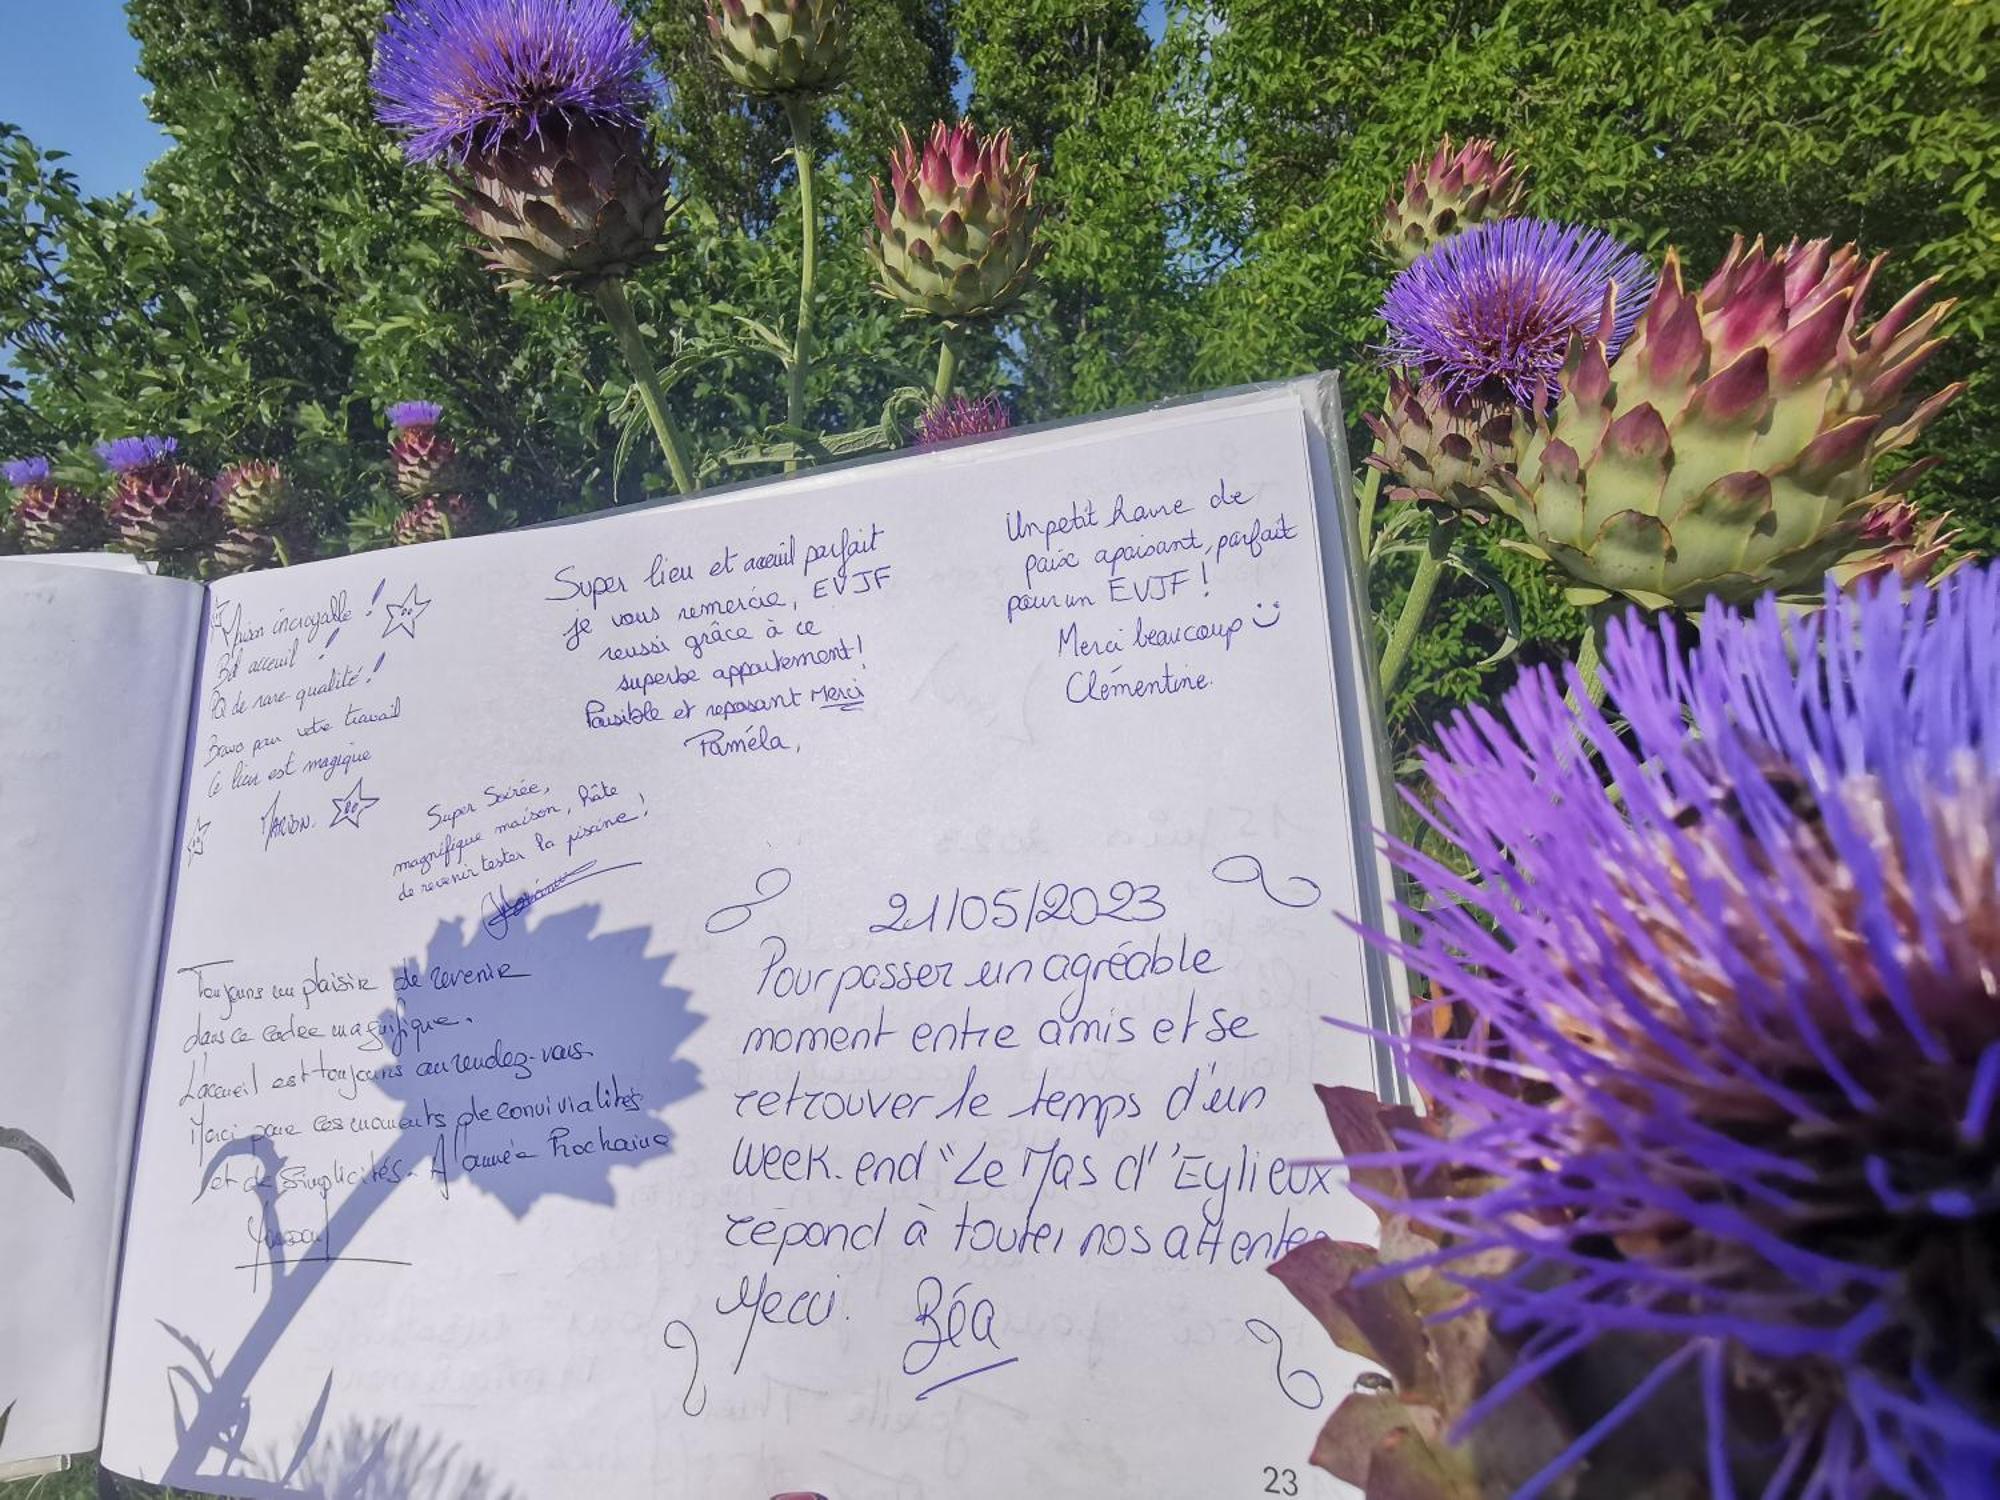 Maison incroyable !
Bel acceuil !
PQ de rare qualité !
Bravo pour votre travail
Ce lieu est magique
MARION.
Super lieu et acceuil parfait
je vous remercie, EVJF
reussi grâce à ce
superbe appartement !
Paisible et reposant Merci
Paméla,
Un petit havre de
paix apaisant, parfait
pour un EVJF !
Merci beaucoup
Clémentine.
Super Soirée,
magnifique maison, hâte
de revenir tester la piscine !
Toujours un plaisir de revenir
dans ce cadre magnifique.
L'accueil est toujours au rendez-vous.
Merci pour ces moments de convivialités
et de Simplicités. A l'année Prochaine
21/05/2023
Pour passer un agréable
moment entre amis et se
retrouver le temps d'un
week-end "Le Mas d' 'Eylieux
répond à toutes nos attentes
Merci. Béa
23